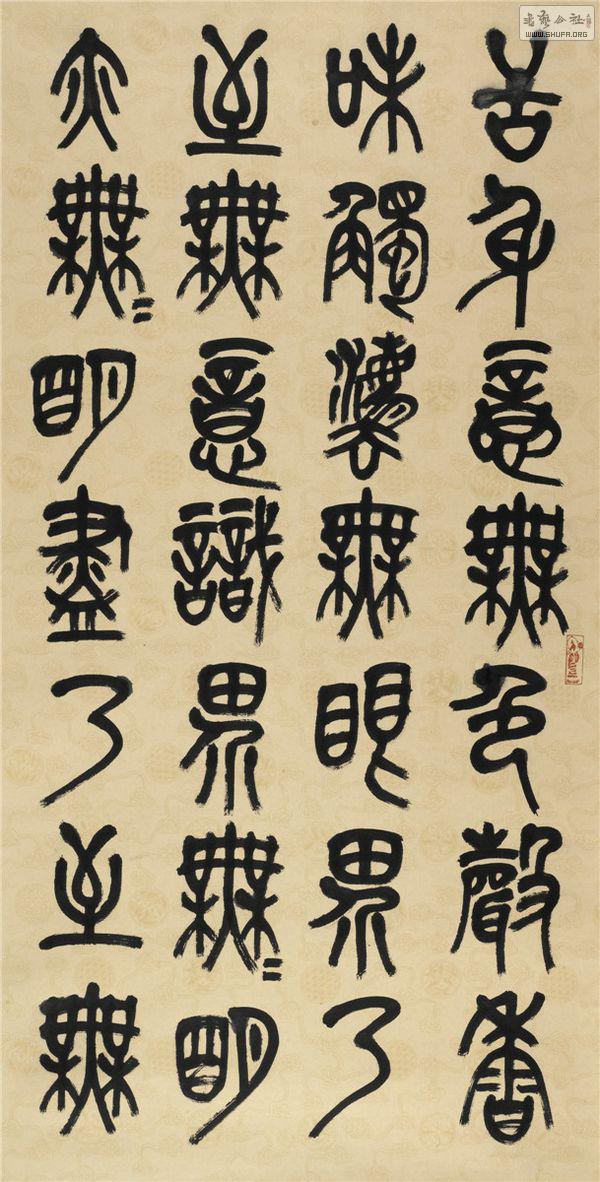 舌身意無色聲香
味觸灋無眼界乃
至無意識界無〻明
亦無〻明盡乃至無
書藝公社
WWW.SHUFA.ORG